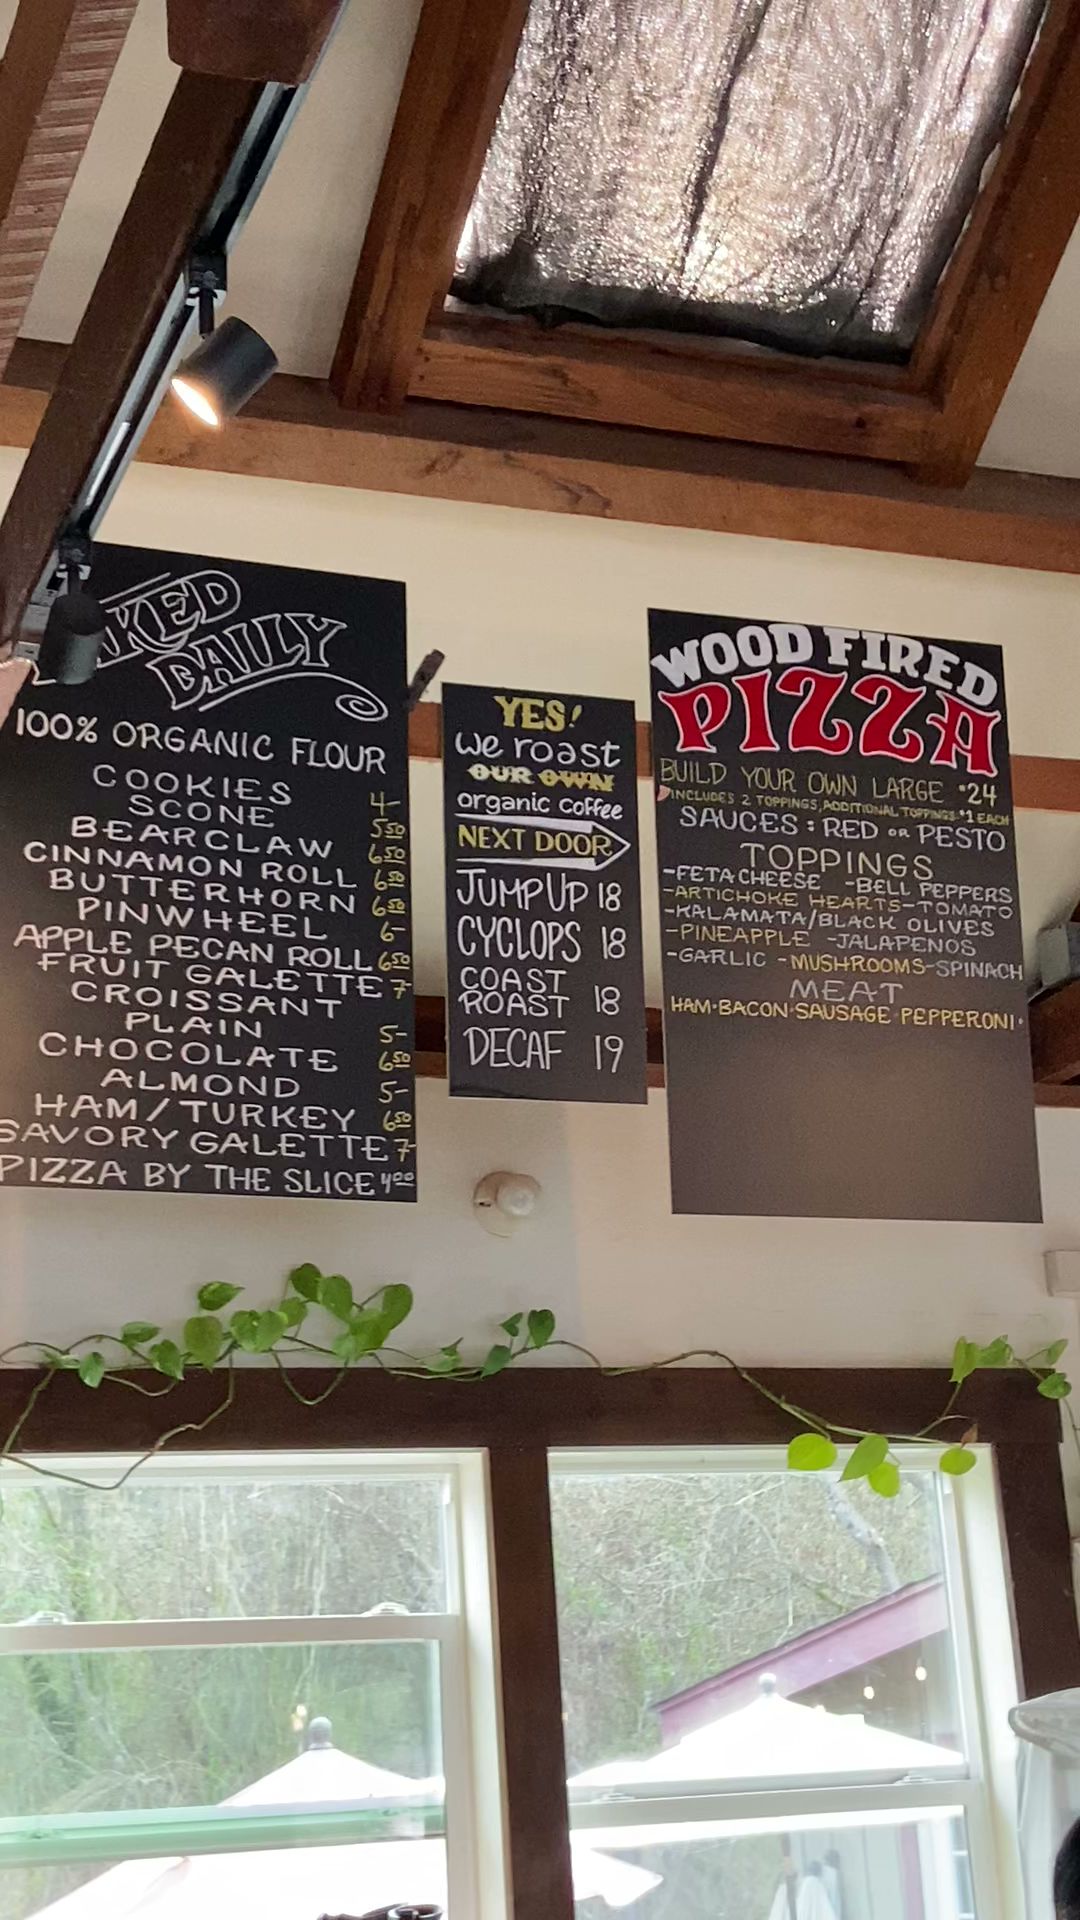 BAKED
DAILY
100% ORGANIC FLOUR
COOKIES 4-
SCONE 550
BEARCLAW 650
CINNAMON ROLL 650
BUTTERHORN 650
PINWHEEL 6-
APPLE PECAN ROLL 650
FRUIT GALETTE 7
CROISSANT
PLAIN 5-
CHOCOLATE 650
ALMOND 5-
HAM/TURKEY 650
SAVORY GALETTE 7
PIZZA BY THE SLICE 400
YES!
we roast
OUR OWN
organic coffee
NEXT DOOR
JUMPUP 18
CYCLOPS 18
COAST
ROAST 18
DECAF 19
WOOD FIRED
PIZZA
BUILD YOUR OWN LARGE $24
INCLUDES 2 TOPPINGS, ADDITIONAL TOPPINGS $1 EACH
SAUCES: RED OR PESTO
TOPPINGS
-FETA CHEESE -BELL PEPPERS
-ARTICHOKE HEARTS-TOMATO
-KALAMATA/BLACK OLIVES
-PINEAPPLE -JALAPENOS
-GARLIC -MUSHROOMS-SPINACH
MEAT
HAM·BACON·SAUSAGE·PEPPERONI·